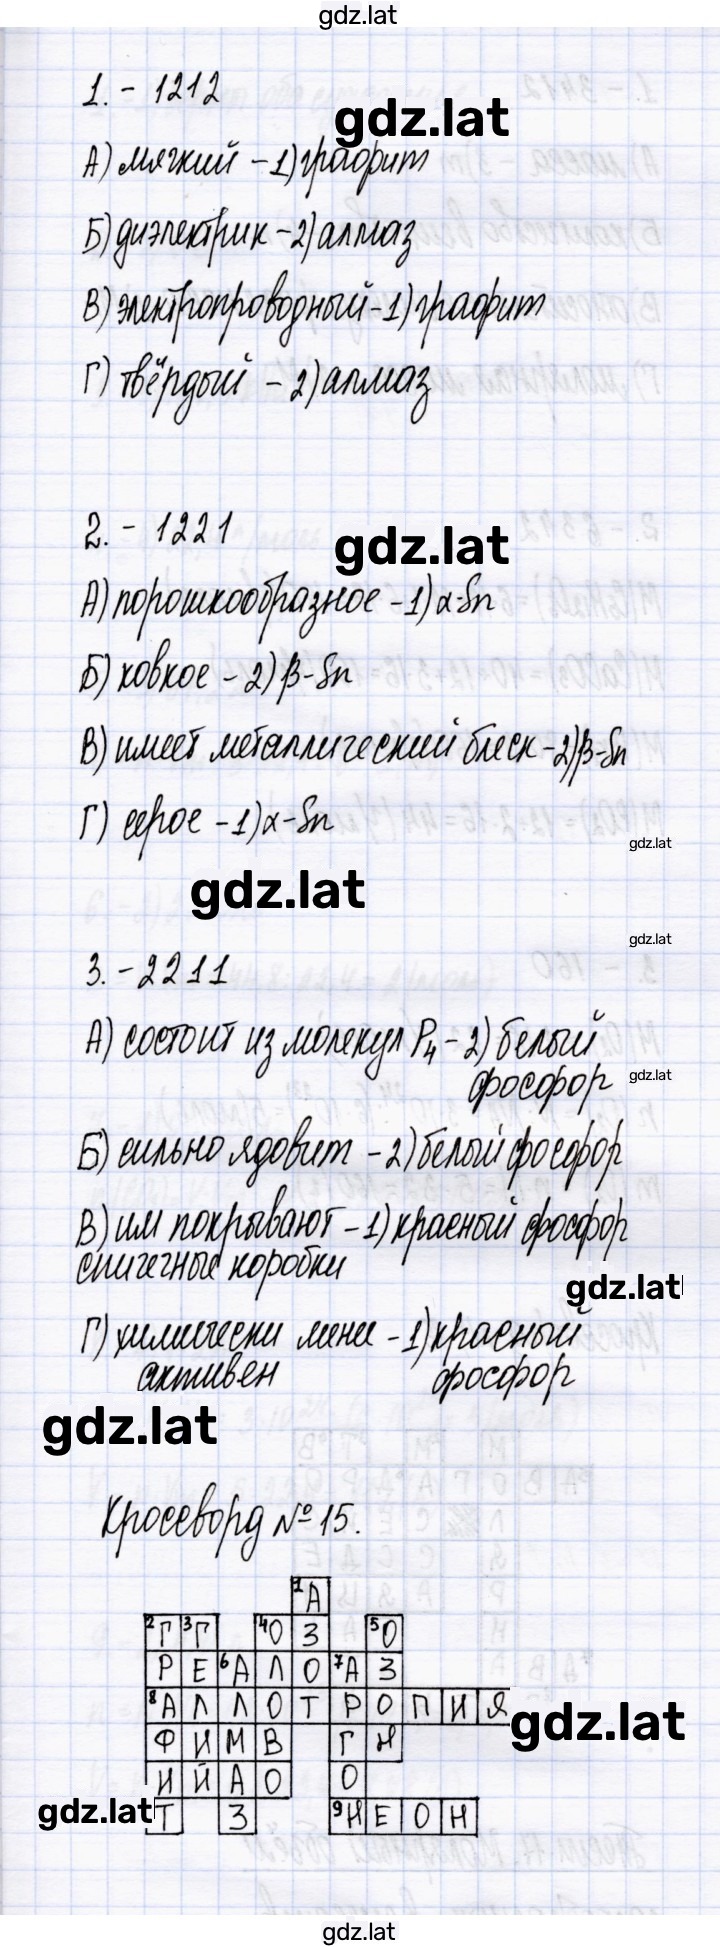 gdz.lat
1. - 1212
gdz.lat
А) мягкий - 1) графит
Б) диэлектрик - 2) алмаз
В) электропроводный - 1) графит
Г) твёрдый - 2) алмаз
2. - 1221
gdz.lat
А) порошкообразное - 1) α-Sn
Б) ковкое - 2) β-Sn
В) имеет металлический блеск - 2) β-Sn
Г) серое - 1) α-Sn
gdz.lat
gdz.lat
gdz.lat
3. - 2211
А) состоит из молекул P₄ - 2) белый
фосфор
gdz.lat
Б) сильно ядовит - 2) белый фосфор
В) им покрывают - 1) красный фосфор
спичечные коробки
gdz.lat
Г) химически менее - 1) красный
активен фосфор
gdz.lat
Кроссворд № 15.
1 А
2 Г 3 Г 4 О З 5 О
Р Е 6 А Л О 7 А З
8 А Л Л О Т Р О П И Я
gdz.lat
Ф И М В Г Н
И Й А О О
gdz.lat
Т З 9 Н Е О Н
gdz.lat